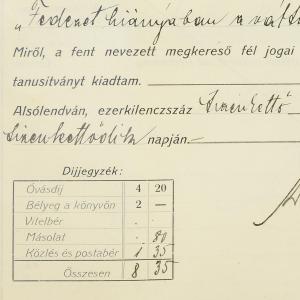 „Fedezet hiányában a váltó
Miről, a fent nevezett megkereső fél jogai
tanusítványt kiadtam.
Alsólendván, ezerkilenczszáz tizenkettő
tizenkettődik napján.
Díjjegyzék:
Óvásdíj 4 20
Bélyeg a könyvön 2 —
Vitelbér . .
Másolat . 80
Közlés és postabér 1 35
Összesen 8 35